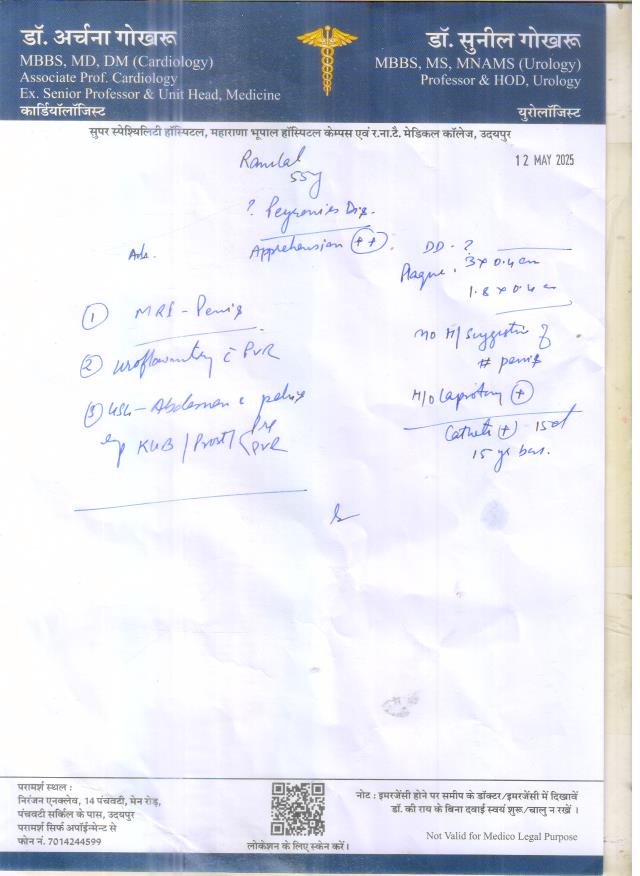 डॉ. अर्चना गोखरू
MBBS, MD, DM (Cardiology)
Associate Prof. Cardiology
Ex. Senior Professor & Unit Head, Medicine
कार्डियॉलॉजिस्ट
डॉ. सुनील गोखरू
MBBS, MS, MNAMS (Urology)
Professor & HOD, Urology
युरोलॉजिस्ट
सुपर स्पेश्यिलिटी हॉस्पिटल, महाराणा भूपाल हॉस्पिटल केम्पस एवं र.ना.टै. मेडिकल कॉलेज, उदयपुर
12 MAY 2025
Ramlal
55y
? Peyronies Dis.
Apprehension ++.
Adv.
① MRI - Penis
② uroflowmetry c̄ PVR
③ USG - Abdomen c pelvis
KUB / Prost / Pre
PVR
DD - ?
Plaque. 3 x 0.4 cm
1.8 x 0.4 c
no H/ suggestive of
# penis
H/O Laprotomy +
Cathet + 15d
15 yrs back.
परामर्श स्थल :
निरंजन एनक्लेव, 14 पंचवटी, मेन रोड़,
पंचवटी सर्किल के पास, उदयपुर
परामर्श सिर्फ अपॉईन्मेन्ट से
फोन नं. 7014244599
लोकेशन के लिए स्केन करें।
नोट : इमरजेंसी होने पर समीप के डॉक्टर/इमरजेंसी में दिखावें
डॉ. की राय के बिना दवाई स्वयं शुरू/चालु न रखें ।
Not Valid for Medico Legal Purpose